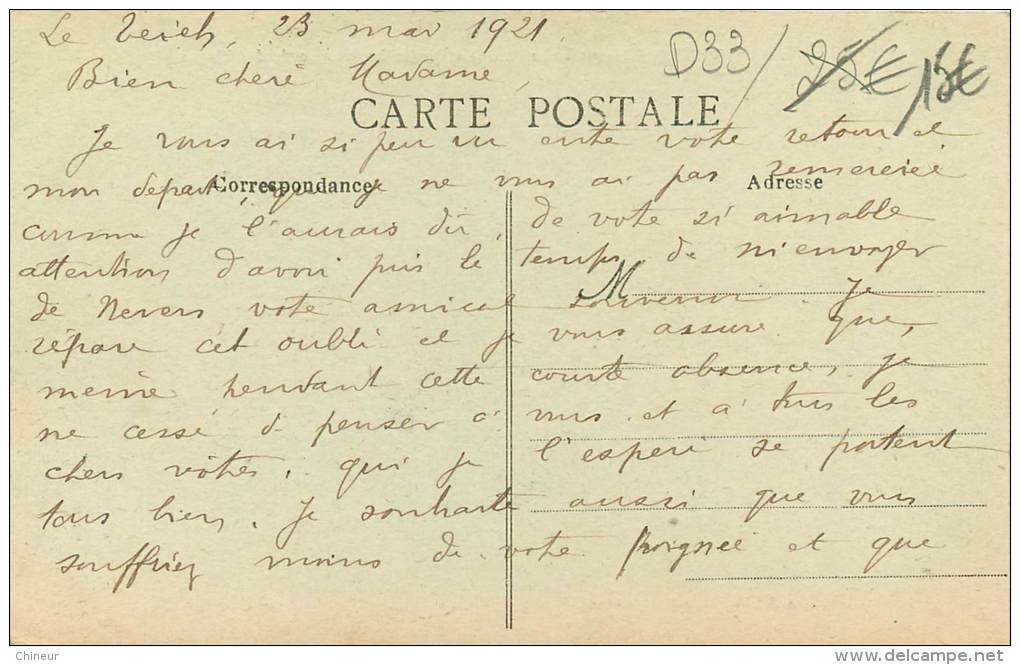 Le Teich, 23 mai 1921
D33 / 25€ / 15€
Bien chère Madame
CARTE POSTALE
Je vous ai si peu vu entre votre retour et
mon départ, que je ne vous ai pas remerciée
Correspondance
Adresse
comme je l'aurais dû, de votre si aimable
attention d'avoir pris le temps de m'envoyer
M
de Nevers votre amical souvenir. Je
répare cet oubli et je vous assure que,
même pendant cette courte absence, je
ne cesse de penser à vous et à tous les
chers vôtres, qui je l'espère se portent
tous bien. Je souhaite aussi que vous
souffriez moins de votre poignée et que
Chineur
delcampe.net